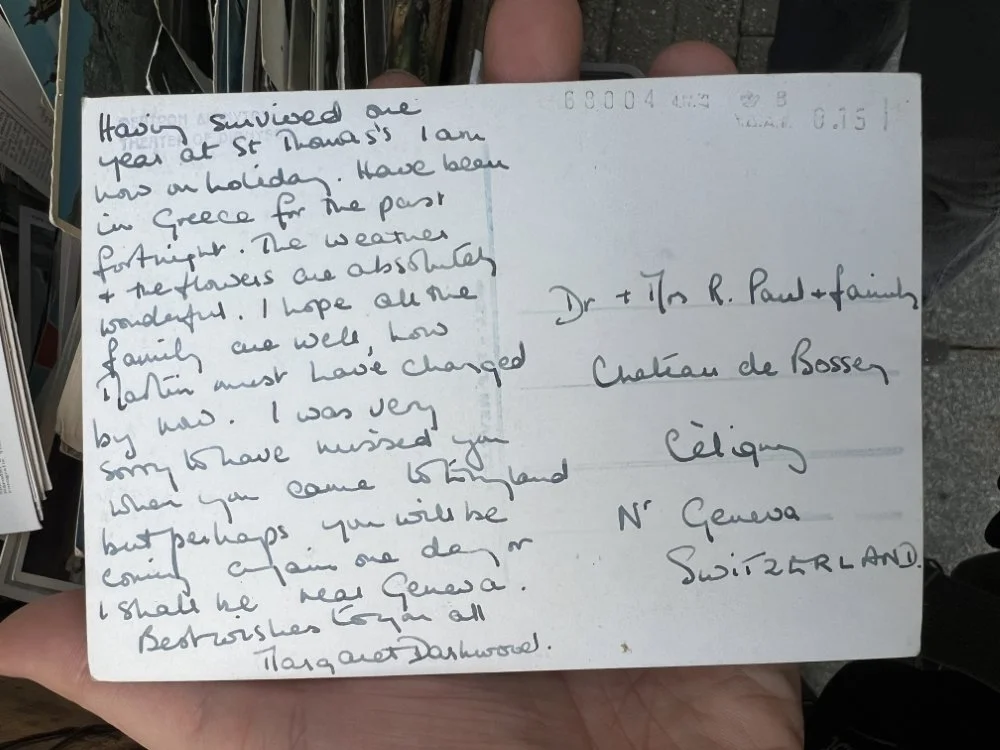 Having survived one
year at St Thomas's I am
now on holiday. Have been
in Greece for the past
fortnight. The weather
+ the flowers are absolutely
wonderful. I hope all the
family are well, how
Martin must have changed
by now. I was very
sorry to have missed you
when you came to England
but perhaps you will be
coming again one day or
I shall be near Geneva.
Best wishes to you all
Margaret Dashwood.
63004
0.15
Dr + Mrs R. Paul + family
Chateau de Bossey
Céligny
Nr Geneva
SWITZERLAND.